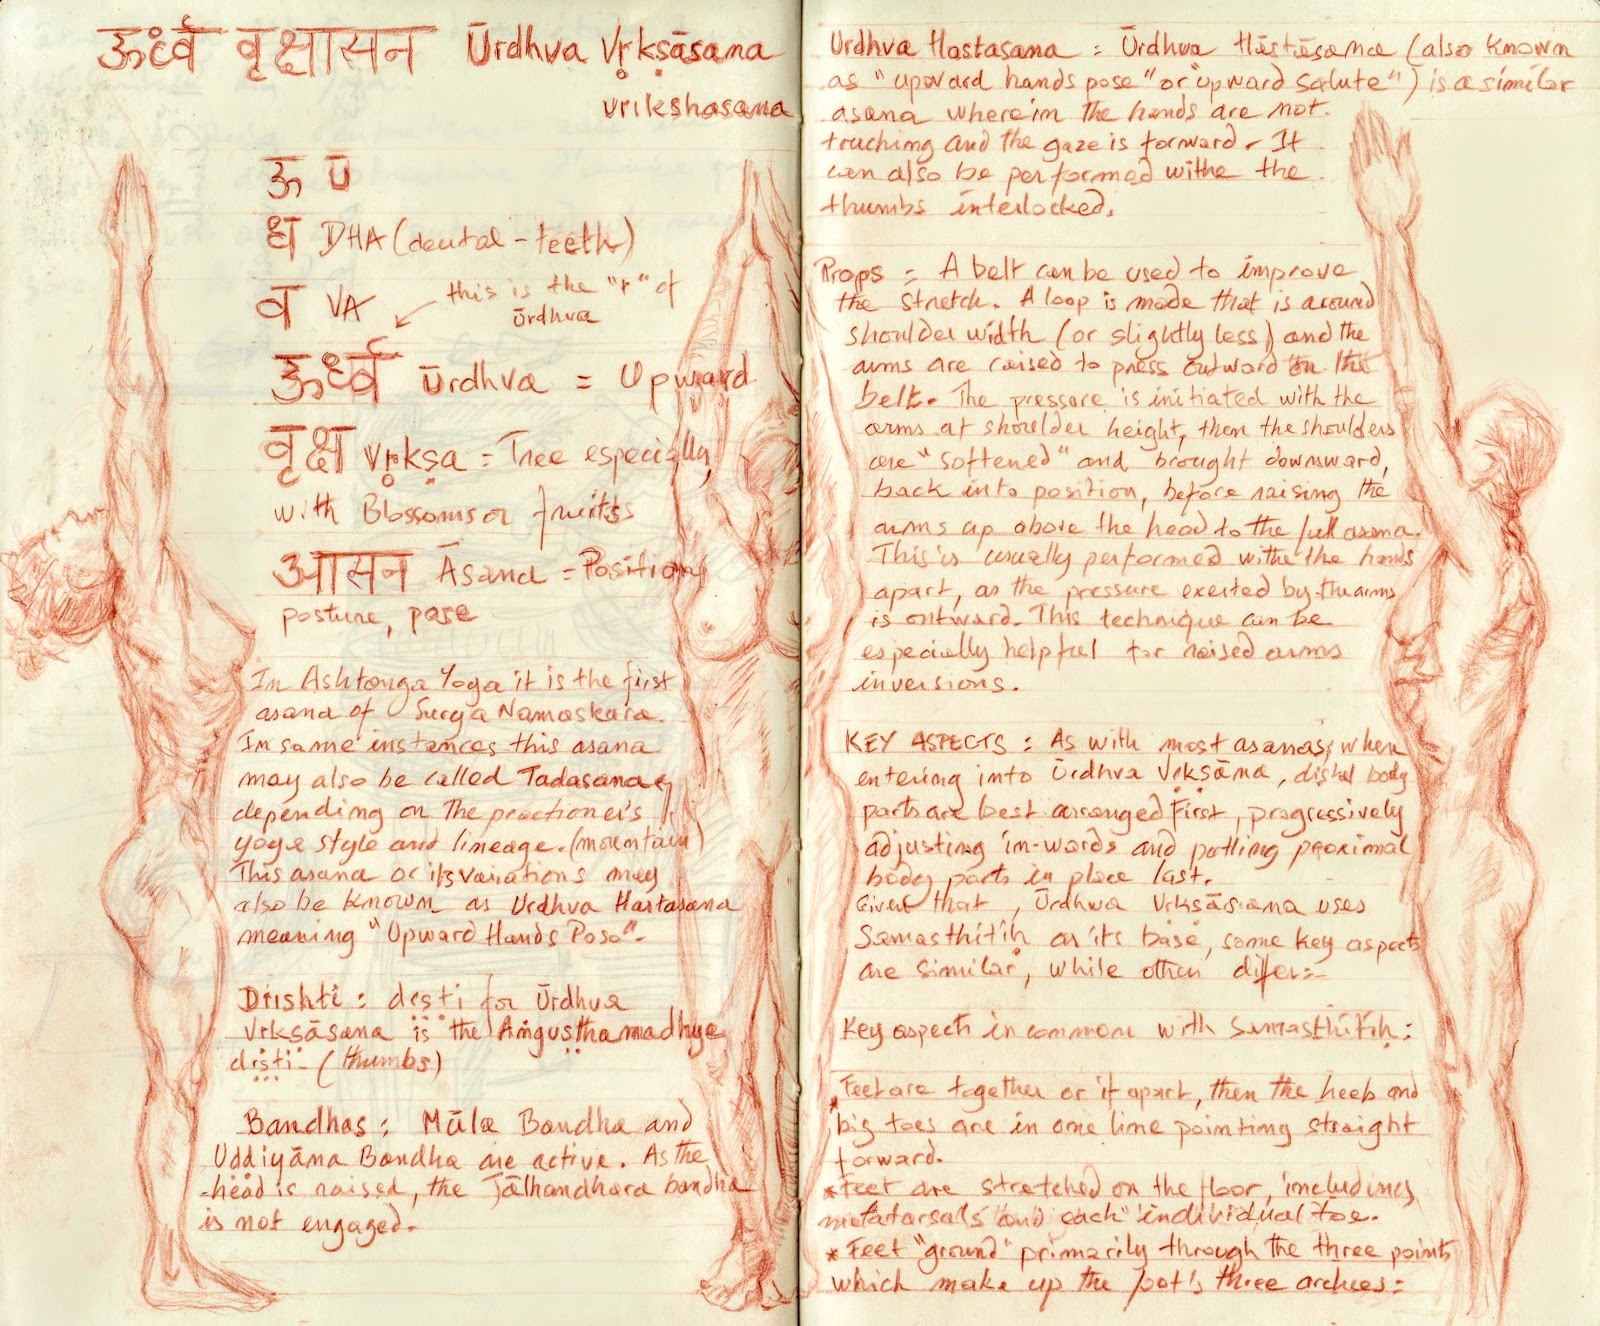 ऊर्ध्व वृक्षासन Ūrdhva Vṛkṣāsana
vrikshasana
ऊ Ū
ध DHA (dental - teeth)
व VA this is the "r" of
Ūrdhva
ऊर्ध्व Ūrdhva = Upward
वृक्ष Vṛkṣa = Tree especially
with Blossoms or fruits
आसन Āsana = Position
posture, pose
In Ashtanga Yoga it is the first
asana of Surya Namaskara.
In some instances this asana
may also be called Tadasana,
depending on the practioner's
yoga style and lineage. (mountain)
This asana or its variations may
also be known as Urdhva Hastasana
meaning "Upward Hands Pose".
Drishti : dṛṣṭi for Ūrdhva
Vṛkṣāsana is the Aṅguṣṭhamadhye
dṛṣṭi - (thumbs)
Bandhas : Mūla Bandha and
Uddiyāna Bandha are active. As the
head is raised, the Jālhandhara bandha
is not engaged.
Urdhva Hastasana = Ūrdhva Hāstāsana (also known
as "upward hands pose" or "upward salute") is a similar
asana wherein the hands are not
truching and the gaze is forward. It
can also be performed withe the
thumbs interlocked.
Props = A belt can be used to improve
the stretch. A loop is made that is around
shoulder width (or slightly less) and the
arms are raised to press outward on the
belt. The pressure is initiated with the
arms at shoulder height, then the shoulders
are "softened" and brought downward,
back into position, before raising the
arms up above the head to the full asana.
This is usually performed withe the hands
apart, as the pressure exerted by the arms
is outward. This technique can be
especially helpful for raised arms
inversions.
KEY ASPECTS : As with most asanas, when
entering into Ūrdhva Vṛkṣāna, distal body
parts are best arranged First, progressively
adjusting in-wards and putting proximal
body parts in place last.
Given that, Ūrdhwa Vṛksāsana uses
Samasthitiḥ as its base, some key aspects
are similar, while other differ:-
Key aspects in common with Samasthitiḥ :
*Feet are together or if apart, then the heels and
big toes are in one line pointing straight
forward.
*Feet are stretched on the floor, including
metatarsals and each individual toe.
*Feet "ground" primarily through the three points
which make up the foot's three arches: